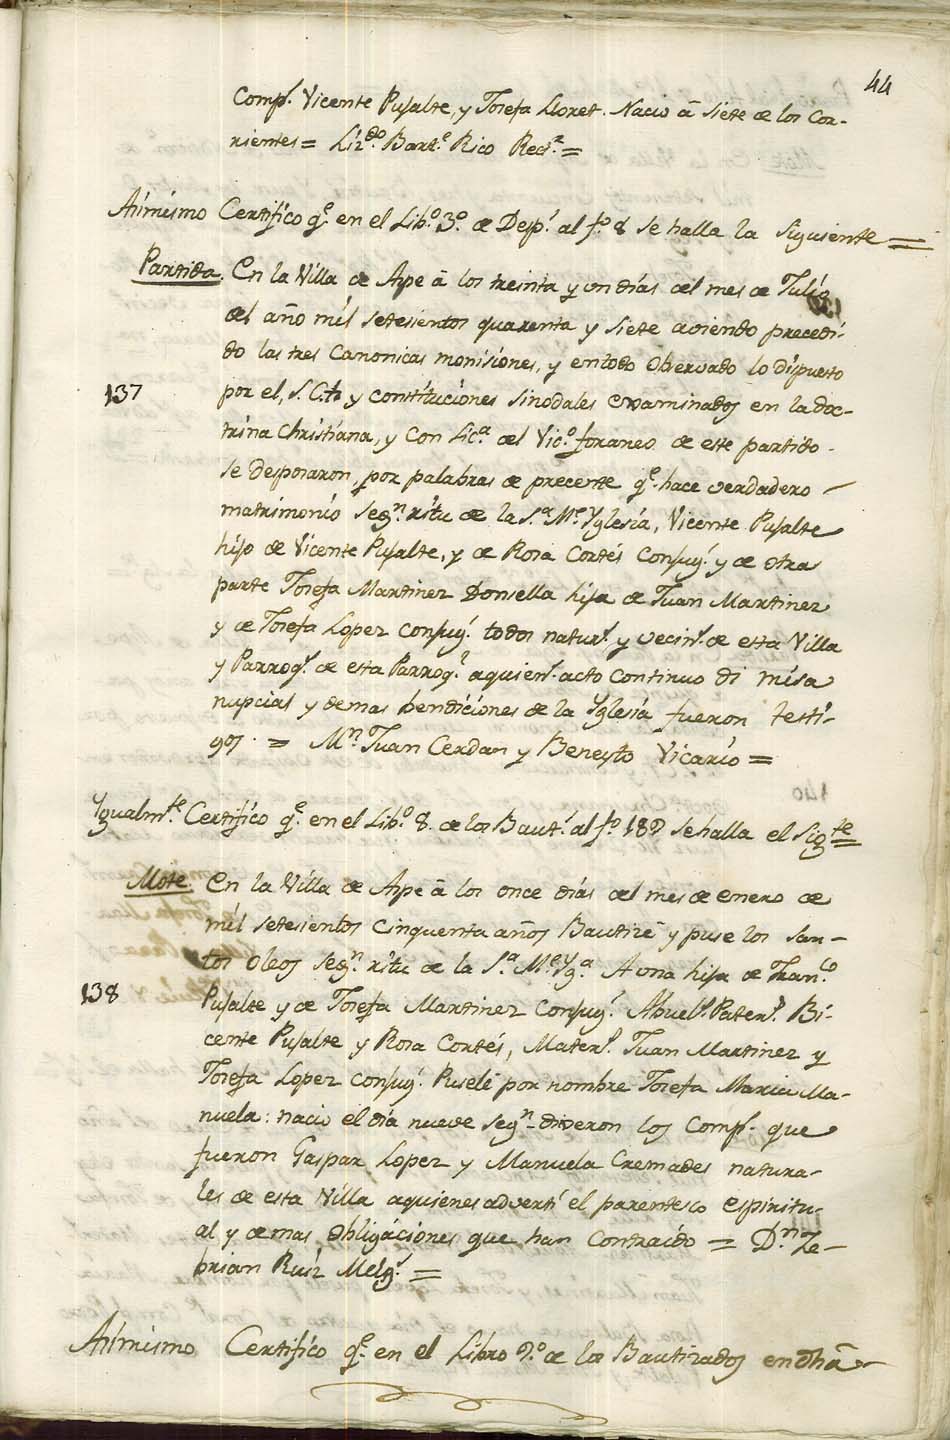 44
Comp.s Vicente Pujalte, y Josefa Lloret. Nacio â siete de los cor-
rientes = Liz.do Bart.e Rico Rect.r =
Asimismo Certifico q.e en el Lib.o 3.o de Desp.s al f.o 8 se halla la siguiente =
Partida. En la Villa de Aspe â los treinta y un dias del mes de Julio
del año mil setesientos quarenta y siete aviendo precedi-
do las tres Canonicas monisiones, y entodo observado lo dispuesto
137
por el S. C.to y constituciones sinodales examinados en la doc-
trina Christiana, y con Lic.a del Vic.o foraneo de este partido
se desposaron, por palabras de precente q.e hace verdadero
matrimonio seg.n ritu de la S.ta M.e Yglesia, Vicente Pujalte
hijo de Vicente Pujalte, y de Rosa Cortés Conjug.s y de otra
parte Josefa Martinez Donsella hija de Juan Martinez
y de Josefa Lopez conjug.s todos natur.s y vecin.s de esta Villa
y Parroq.s de esta Parroq.l aquien.s acto continuo di misa
nupcial y demas bendiciones de la Yglesia fueron testi-
gos. = M.n Juan Cerdan y Beneyto Vicario =
Ygualm.te Certifico q.e en el Lib.o 8. de los Baut.s al f.o 189 se halla el sig.te =
Mote. En la Villa de Aspe â los once dias del mes de enero de
mil setesientos cinquenta años Bautizé y puse los san-
tos oleos seg.n ritu de la S.ta M.e Yg.a A una hija de Fran.co
138
Pujalte y de Josefa Martinez Conjug.s Abuel.s Pater.s Bi-
cente Pujalte y Rosa Cortés, Mater.s Juan Martinez y
Josefa Lopez conjug.s Puselé por nombre Josefa Maria Ma-
nuela: nacio el dia nueve seg.n dixeron los Comp.s que
fueron Gaspar Lopez y Manuela Cremades natura-
les de esta Villa aquienes adverti el parentesco espiritu-
al y demas obligaciones que han contraido = D.n Ze-
brian Ruiz Melg.s =
Asimismo Certifico q.e en el Libro 9.o de los Bautizados en dhâ